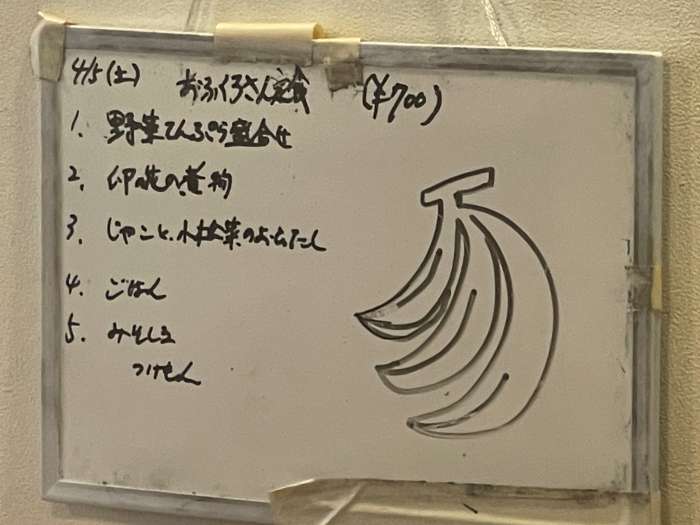 4/5(土) おふくろさん定食 (¥700)
1. 野菜てんぷら盛合せ
2. 卯の花の煮物
3. じゃこと小松菜のおひたし
4. ごはん
5. みそしる
つけもん